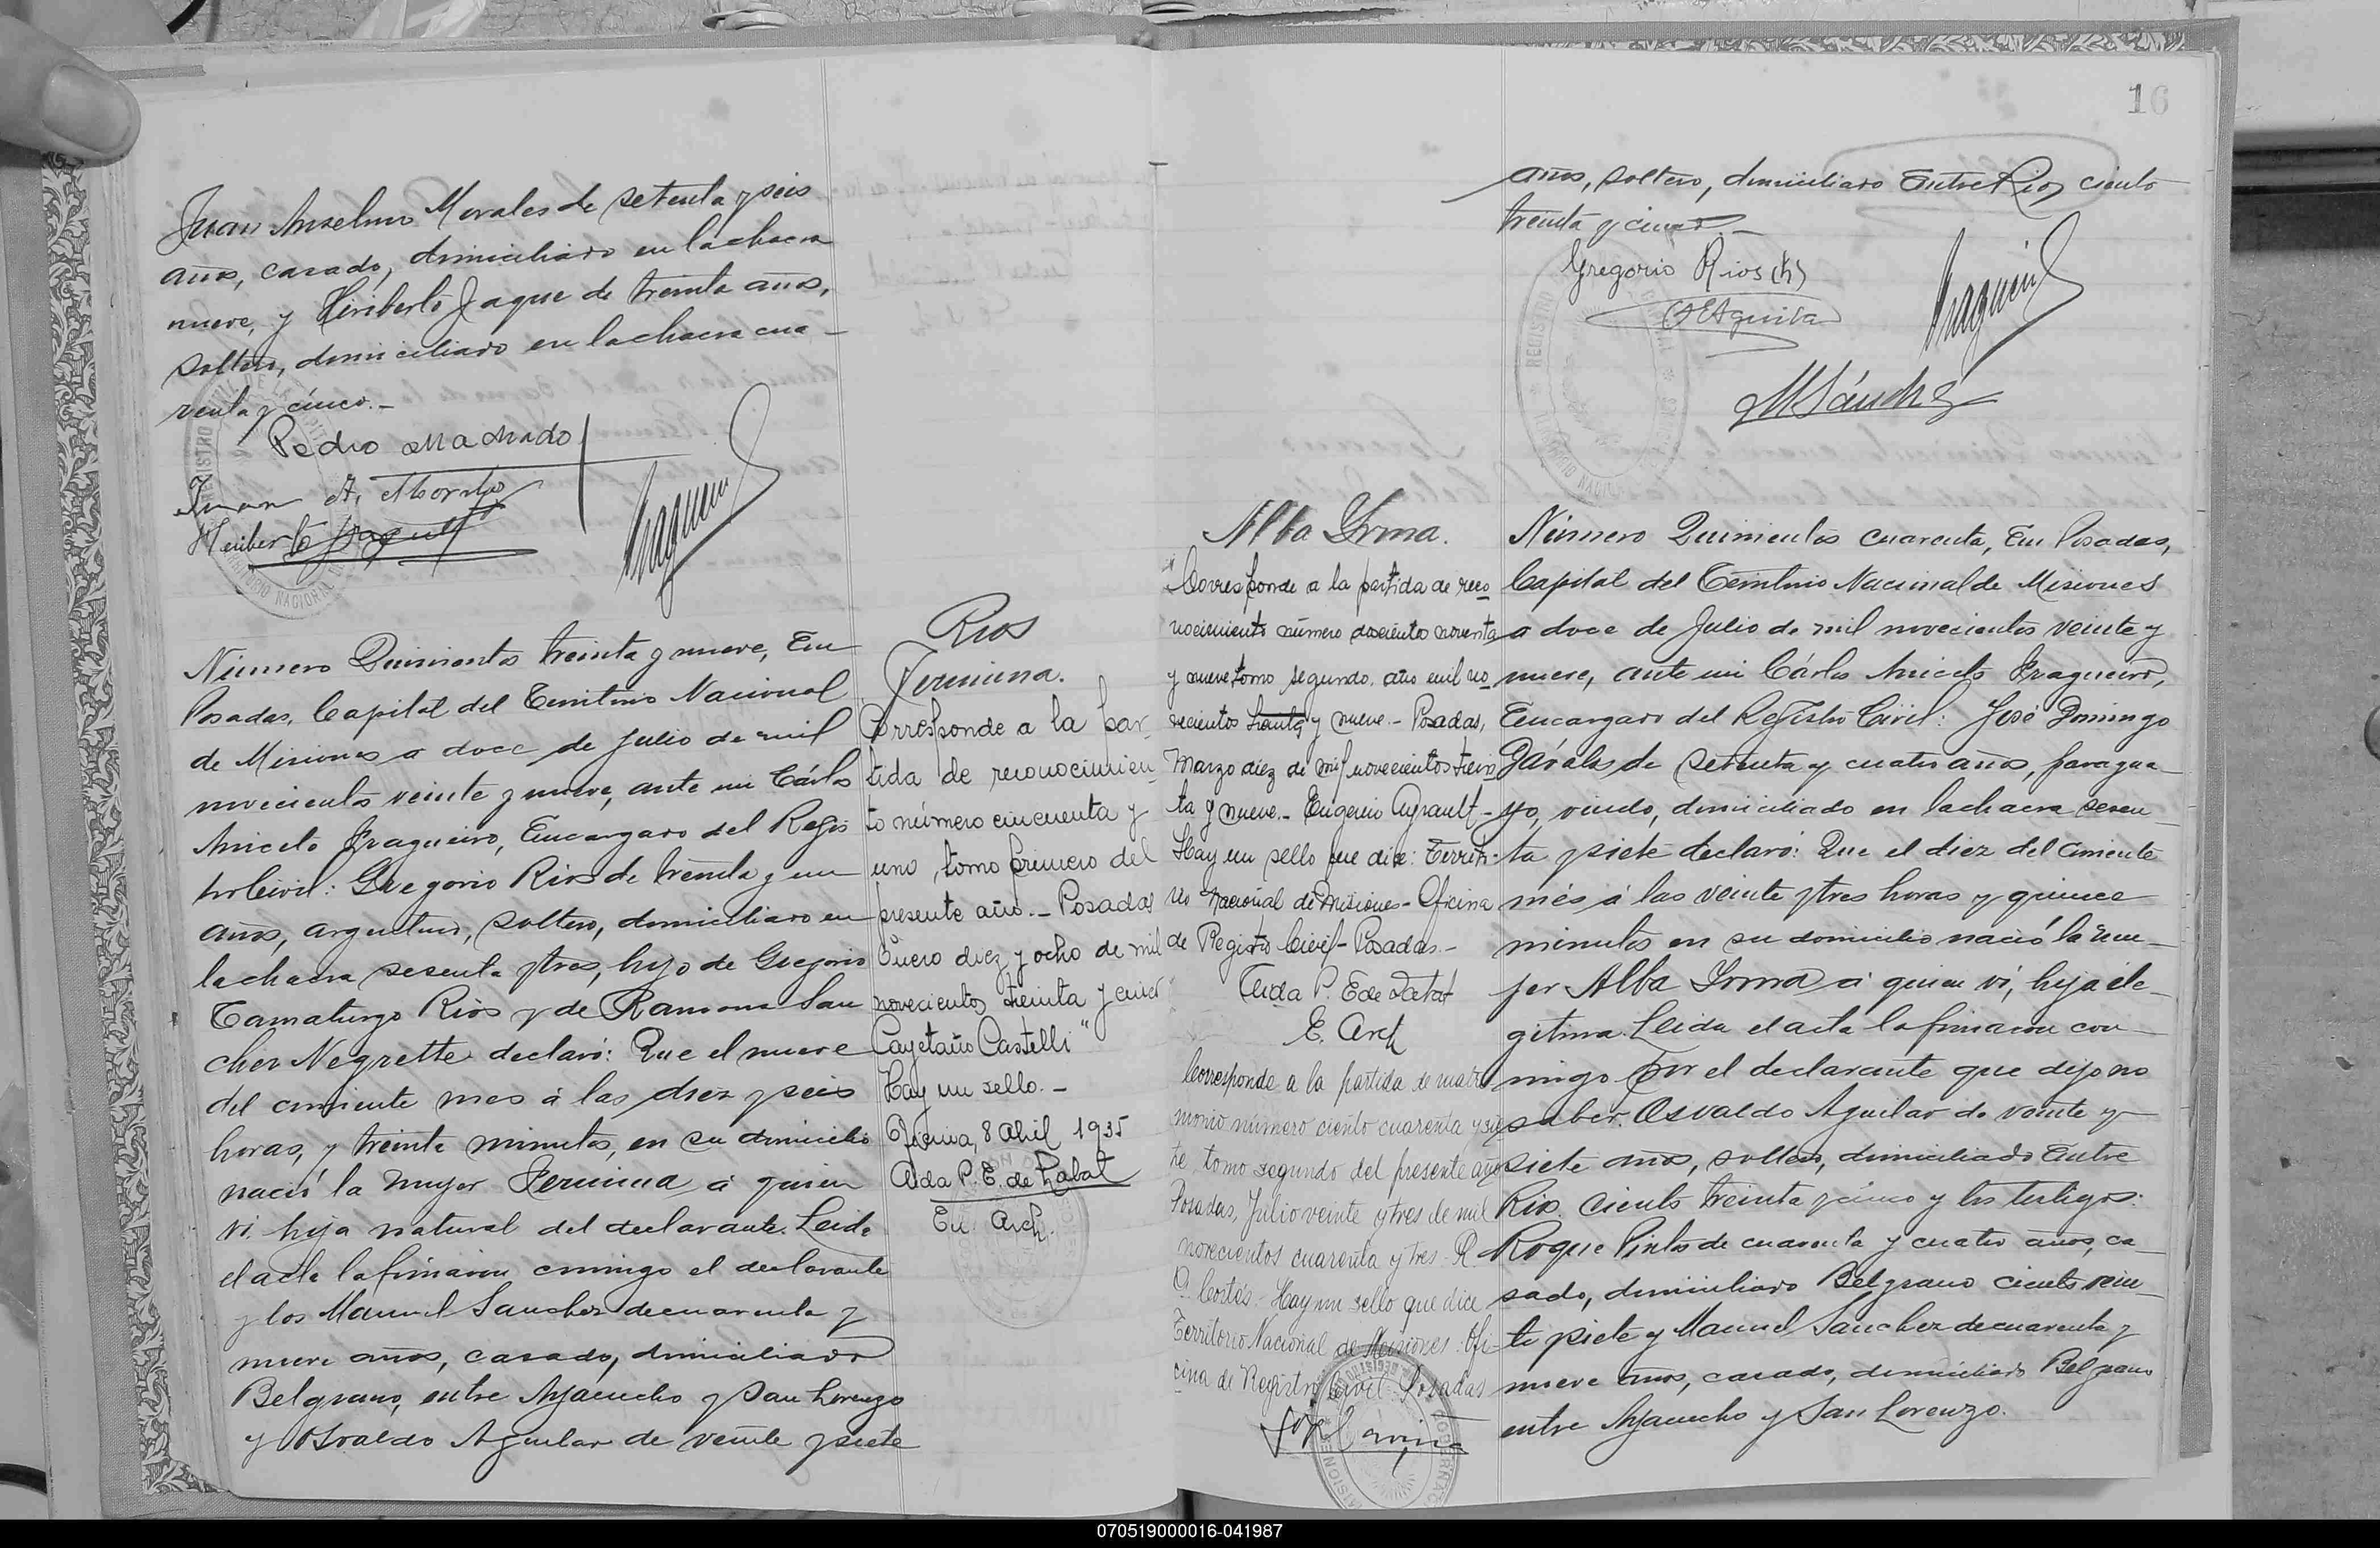 Juan Anselmo Morales de setenta y seis
años, casado, domiciliado en la chacra
nueve, y Heriberto Jaque de treinta años,
soltero, domiciliado en la chacra cua-
renta y cinco.-
Pedro Machado
Juan A. Morales
Heriberto Jaque
Número Quinientos treinta y nueve, En
Posadas, Capital del Territorio Nacional
de Misiones a doce de Julio de mil
novecientos veinte y nueve, ante mi Cárlos
Aniceto Fragueiro, Encargado del Regis
tro Civil: Gregorio Rios de treinta y un
años, argentino, soltero, domiciliado en
la chacra sesenta y tres, hijo de Gregorio
Tamaturgo Rios y de Ramona San
chez Negrette declaró: Que el nueve
del corriente mes á las diez y seis
horas, y treinta minutos, en su domicilio
nació la mujer Fermina á quien
vi, hija natural del declarante. Leida
el acta la firmaron conmigo el declarante
y los Manuel Sanchez de cuarenta y
nueve años, casado, domiciliado
Belgrano, entre Ayacucho y San Lorenzo
y Osvaldo Aguilar de veinte y siete
Rios
Fermina.
Corresponde a la par-
tida de reconocimien-
to número cincuenta y
uno, tomo primero del
presente año.- Posadas
Enero diez y ocho de mil
novecientos treinta y cinco
Cayetano Castelli"
Hay un sello.-
Oficina, 8 Abril 1935
Aida P. E. de Labat
En. Arch.
16
años, soltero, domiciliado Entre Rios ciento
treinta y cinco.-
Gregorio Rios (h)
O Aguilar
M Sánchez
Alba Irma.
"Corresponde a la partida de reco-
nocimiento número doscientos noventa
y nueve tomo segundo, año mil no-
vecientos treinta y nueve.- Posadas,
Marzo diez de mil novecientos trein
ta y nueve.- Eugenio Ayrault-
Hay un sello que dice: Territo-
rio Nacional de Misiones- Oficina
de Registro Civil- Posadas.-
Aida P. E de Labat
E. Arch
Corresponde a la partida de matri
monio número ciento cuarenta y sie
te, tomo segundo del presente año
Posadas, Julio veinte y tres de mil
novecientos cuarenta y tres- R.
A. Cortés- Hay un sello que dice
Territorio Nacional de Misiones. Ofi-
cina de Registro Civil- Posadas
Número Quinientos cuarenta, En Posadas,
Capital del Territorio Nacional de Misiones
a doce de Julio de mil novecientos veinte y
nueve, ante mi Cárlos Aniceto Fragueiro,
Encargado del Registro Civil: José Domingo
de setenta y cuatro años, paragua-
yo, viudo, domiciliado en la chacra sesen-
ta y siete declaró: Que el diez del corriente
més á las veinte y tres horas y quince
minutos en su domicilio nació la mu-
jer Alba Irma á quien vi, hija ile-
gitima. Leida el acta la firmaron con-
migo por el declarante que dijo no
saber. Osvaldo Aguilar de veinte y
siete años, soltero, domiciliado Entre
Rios ciento treinta y cinco y los testigos:
Roque Pintos de cuarenta y cuatro años, ca-
sado, domiciliado Belgrano ciento vein-
te y siete y Manuel Sanchez de cuarenta y
nueve años, casado, domiciliado Belgrano
entre Ayacucho y San Lorenzo.
070519000016-041987